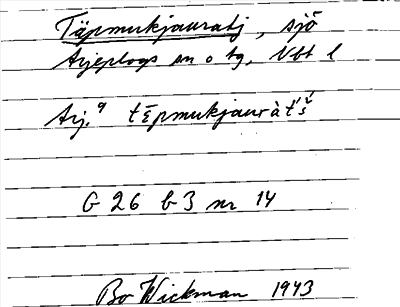 Täpmukjauratj, sjö
Arjeplogs sn o tg, Vbt l
Arj.9 tēpmukjauràt́š́
G 26 b 3 nr 14
Bo Wickman 1943